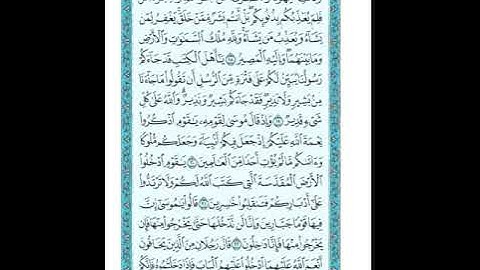 فَلِمَ يُعَذِّبُكُم بِذُنُوبِكُم بَلْ أَنتُم بَشَرٌ مِّمَّنْ خَلَقَ يَغْفِرُ لِمَن
يَشَاءُ وَيُعَذِّبُ مَن يَشَاءُ وَلِلَّهِ مُلْكُ السَّمَٰوَٰتِ وَالْأَرْضِ
وَمَا بَيْنَهُمَا وَإِلَيْهِ الْمَصِيرُ ١٨ يَٰأَهْلَ الْكِتَٰبِ قَدْ جَاءَكُمْ
رَسُولُنَا يُبَيِّنُ لَكُمْ عَلَىٰ فَتْرَةٍ مِّنَ الرُّسُلِ أَن تَقُولُوا مَا جَاءَنَا
مِنْ بَشِيرٍ وَلَا نَذِيرٍ فَقَدْ جَاءَكُم بَشِيرٌ وَنَذِيرٌ وَاللَّهُ عَلَىٰ كُلِّ
شَيْءٍ قَدِيرٌ ١٩ وَإِذْ قَالَ مُوسَىٰ لِقَوْمِهِ يَٰقَوْمِ اذْكُرُوا
نِعْمَةَ اللَّهِ عَلَيْكُمْ إِذْ جَعَلَ فِيكُمْ أَنبِيَاءَ وَجَعَلَكُم مُّلُوكًا
وَءَاتَىٰكُم مَّا لَمْ يُؤْتِ أَحَدًا مِّنَ الْعَٰلَمِينَ ٢٠ يَٰقَوْمِ ادْخُلُوا
الْأَرْضَ الْمُقَدَّسَةَ الَّتِي كَتَبَ اللَّهُ لَكُمْ وَلَا تَرْتَدُّوا
عَلَىٰ أَدْبَارِكُمْ فَتَنقَلِبُوا خَٰسِرِينَ ٢١ قَالُوا يَٰمُوسَىٰ إِنَّ
فِيهَا قَوْمًا جَبَّارِينَ وَإِنَّا لَن نَّدْخُلَهَا حَتَّىٰ يَخْرُجُوا مِنْهَا فَإِن
يَخْرُجُوا مِنْهَا فَإِنَّا دَٰخِلُونَ ٢٢ قَالَ رَجُلَانِ مِنَ الَّذِينَ يَخَافُونَ
أَنْعَمَ اللَّهُ عَلَيْهِمَا ادْخُلُوا عَلَيْهِمُ الْبَابَ فَإِذَا دَخَلْتُمُوهُ فَإِنَّكُمْ